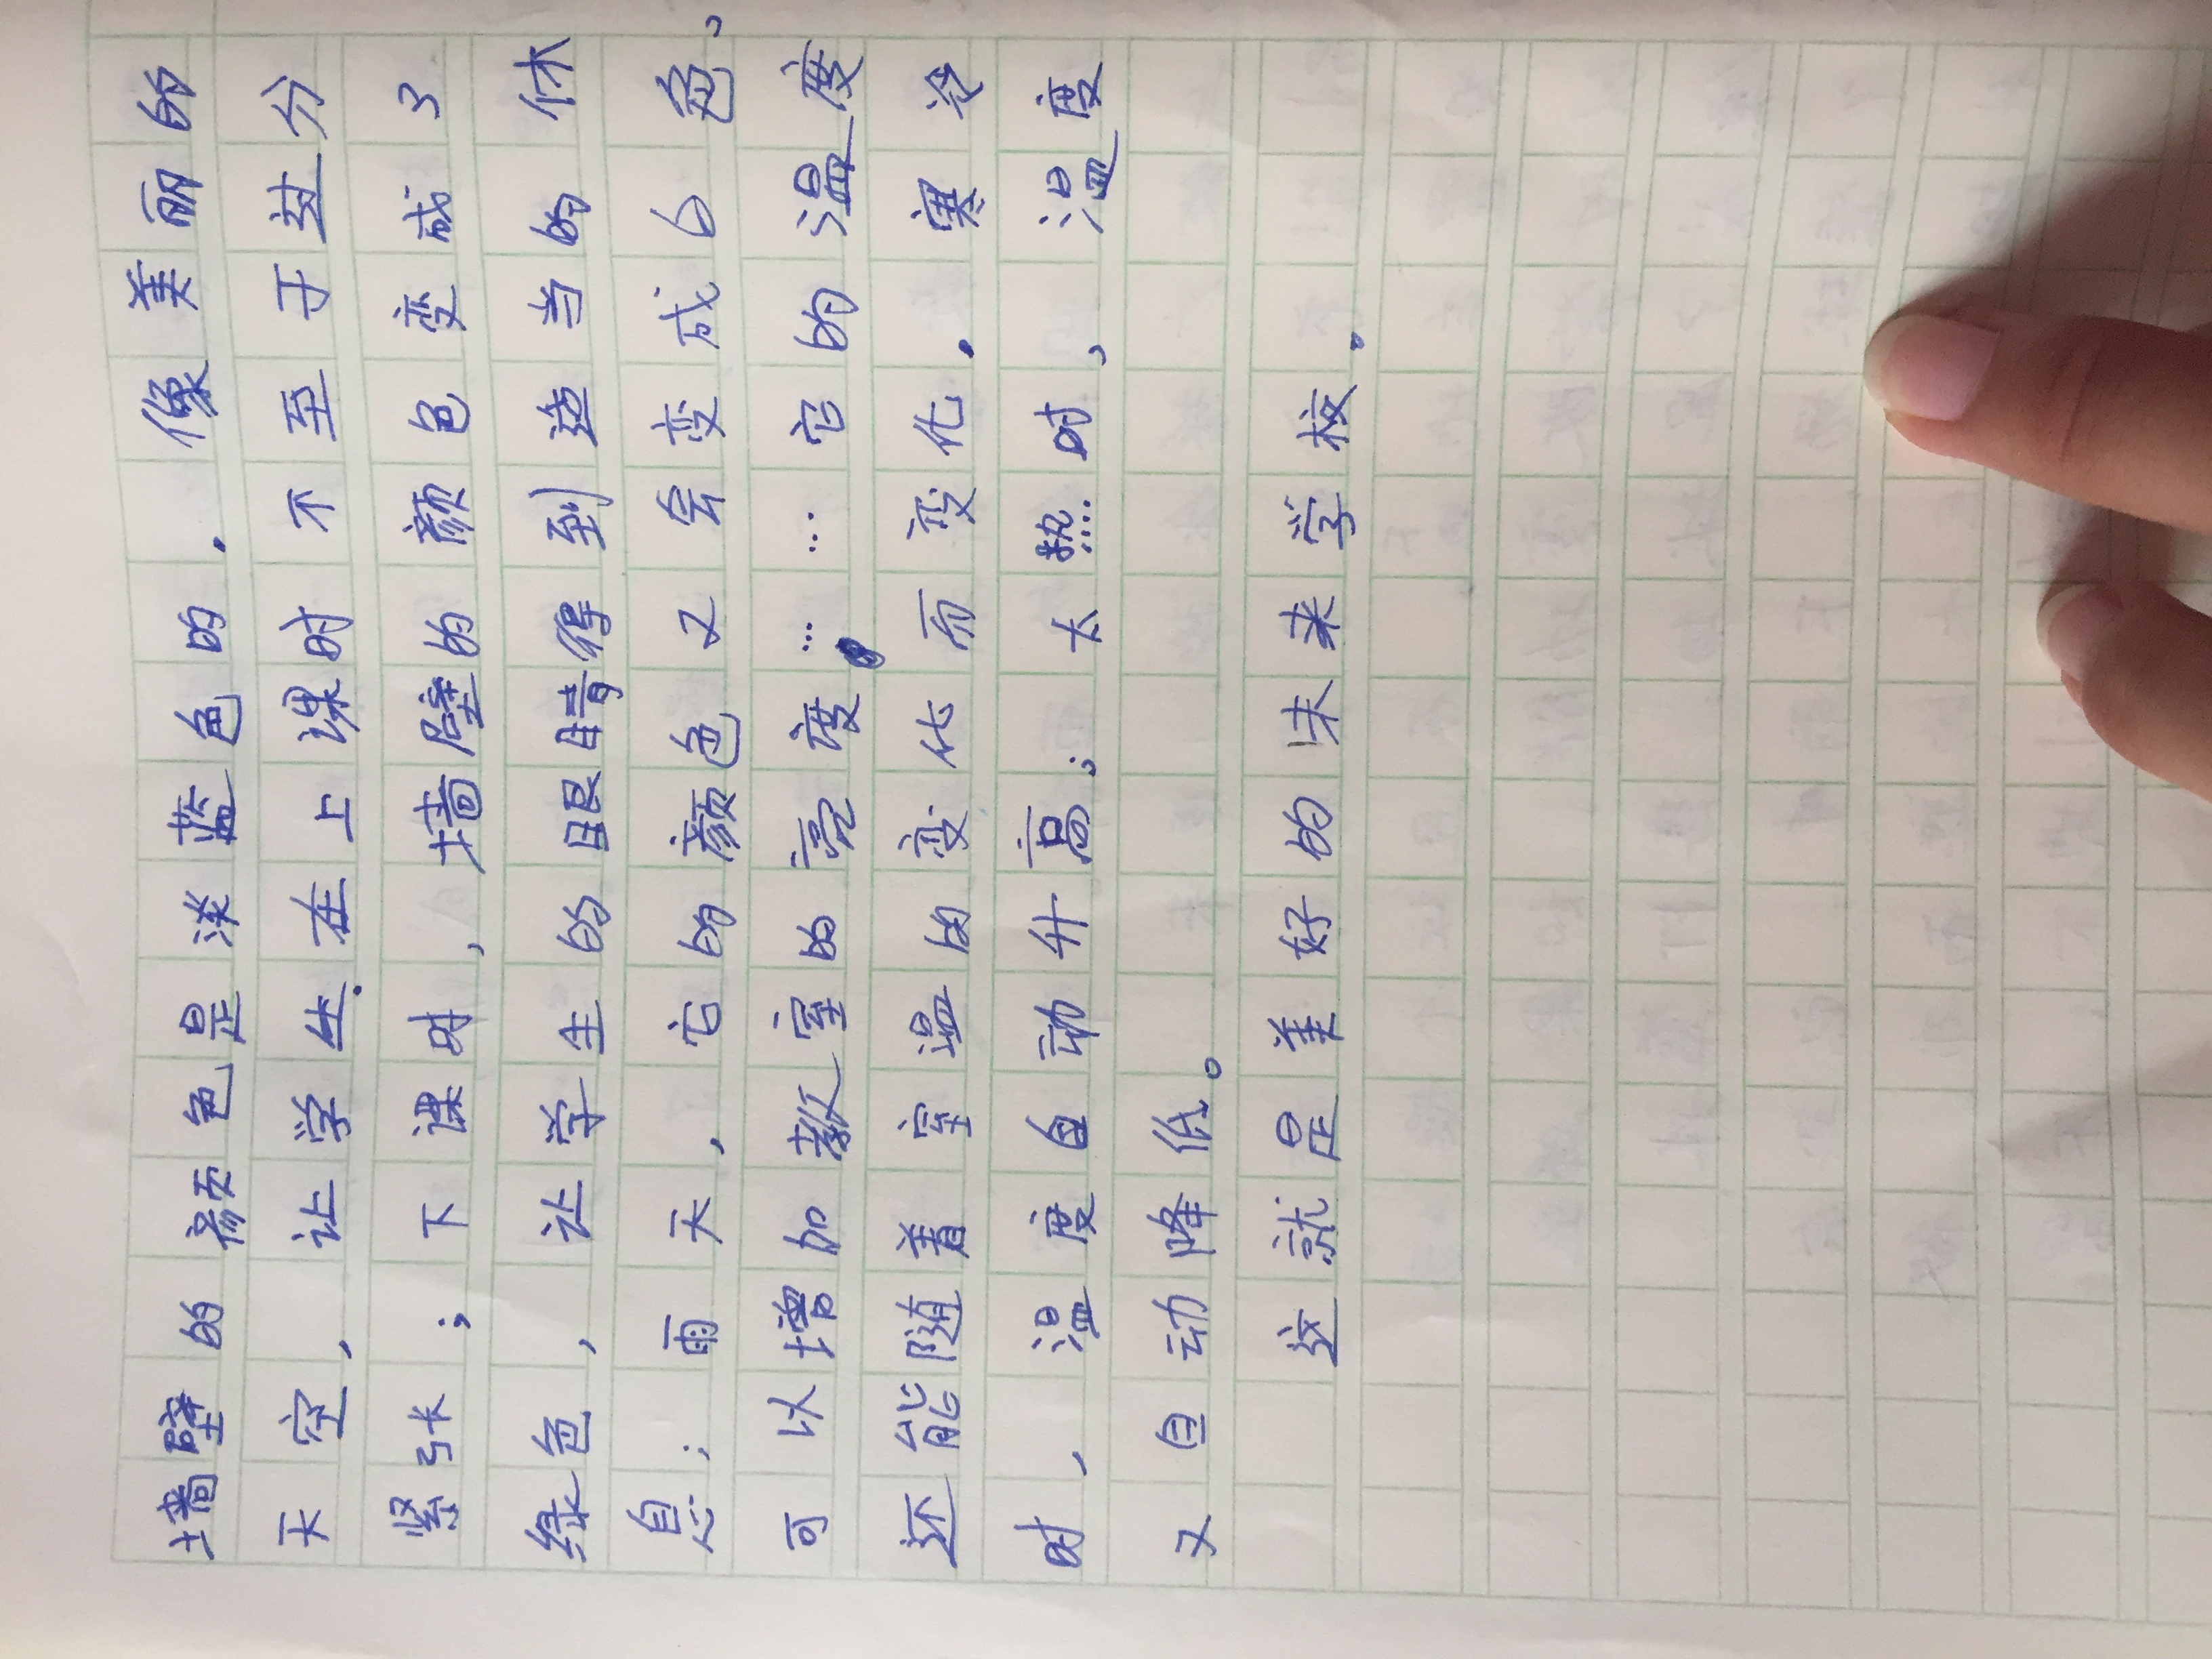 墙壁的颜色是淡蓝色的.像美丽的
天空,让学生在上课时不至于过分
紧张;下课时,墙壁的颜色变成了
绿色,让学生的眼睛得到适当的休
息;雨天,它的颜色又会变成白色,
可以增加教室的亮度,……它的温度
还能随着室温的变化而变化.寒冷
时,温度自动升高;太热时,温度
又自动降低。
这就是美好的未来学校。